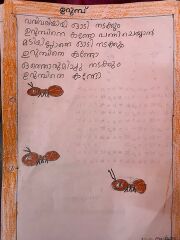 ഉറുമ്പ്
വരിവരിയായി ഓടി നടക്കും
ഉറുമ്പിനെ കണ്ടോ
മടിയില്ലാതെ ഓടി നടക്കും
ഉറുമ്പിനെ കണ്ടോ
ഒത്തൊരുമിച്ചു നടക്കും
ഉറുമ്പിനെ കണ്ടോ